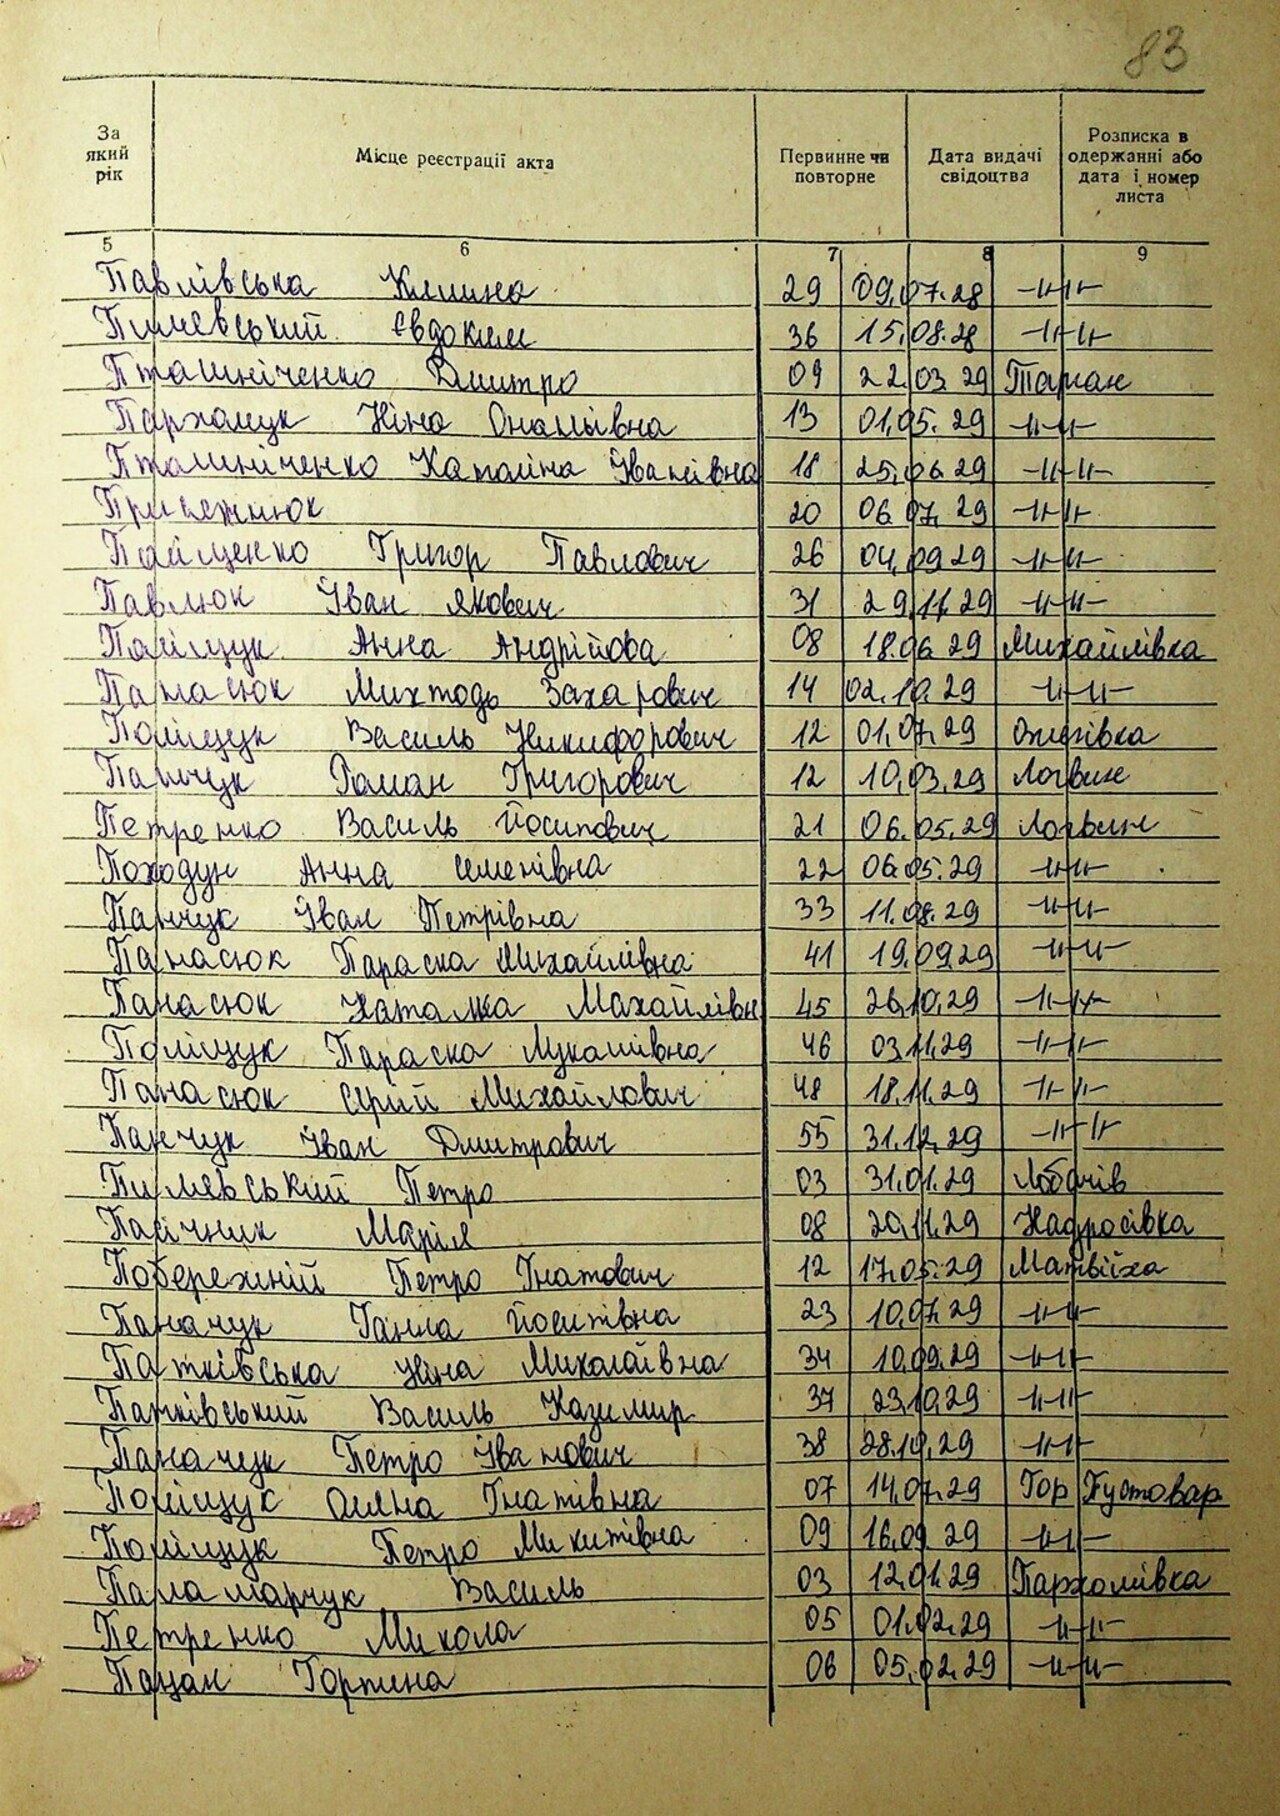 83
За який рік Місце реєстрації акта Первинне чи повторне Дата видачі свідоцтва Розписка в одержанні або дата і номер листа
5 6 7 8 9
Павлівська 29 09.07.28 -ıı-ıı-
Євдоким 36 15.08.28 -ıı-ıı-
Пташніченко Дмитро 09 22.03 29 Таран
Пархомук Ніна 13 01.05. 29 -ıı-ıı-
Пташніченко Іванівна 18 25.06.29 -ıı-ıı-
20 06.07. 29 -ıı-ıı-
Григор Павлович 26 04.09 29 -ıı-ıı-
Павлюк Іван Якович 31 29.11.29 -ıı-ıı-
Поліщук Анна Андрійова 08 18.06 29 Михайлівка
Панасюк Захарович 14 02.10.29 -ıı-ıı-
Поліщук Василь Никифорович 12 01.07.29
Роман Григорович 12 10.03.29 Логвин
Петренко Василь Йосипович 21 06.05.29 Логвин
Походун Анна Семенівна 22 06.05.29 -ıı-ıı-
Панчук Іван Петрівна 33 11.08.29 -ıı-ıı-
Панасюк Параска Михайлівна 41 19.09.29 -ıı-ıı-
Панасюк Наталка Махайлівн 45 26.10.29 -ıı-ıı-
Поліщук Параска Лукашівна 46 03.11.29 -ıı-ıı-
Панасюк Сергій Михайлович 48 18.11.29 -ıı-ıı-
Панчук Іван Дмитрович 55 31.12.29 -ıı-ıı-
Петро 03 31.01.29 Лобачів
Пасічник Марія 08 20.11.29 Надросівка
Побережній Петро Гнатович 12 17.05.29 Матвіїха
Паначук Ганна Йосипівна 23 10.07.29 -ıı-ıı-
Патківська Ніна Миколаївна 34 10.09.29 -ıı-ıı-
Патківський Василь Казимир 37 23.10.29 -ıı-ıı-
Паначук Петро Іванович 38 28.10.29 -ıı-ıı-
Поліщук Гнатівна 07 14.07.29 Гор Пустовар
Поліщук Петро Микитівна 09 16.09 29 -ıı-ıı-
Паламарчук Василь 03 12.01.29 Пархомівка
Петренко Микола 05 01.02.29 -ıı-ıı-
Пацан Горпина 06 05.02.29 -ıı-ıı-